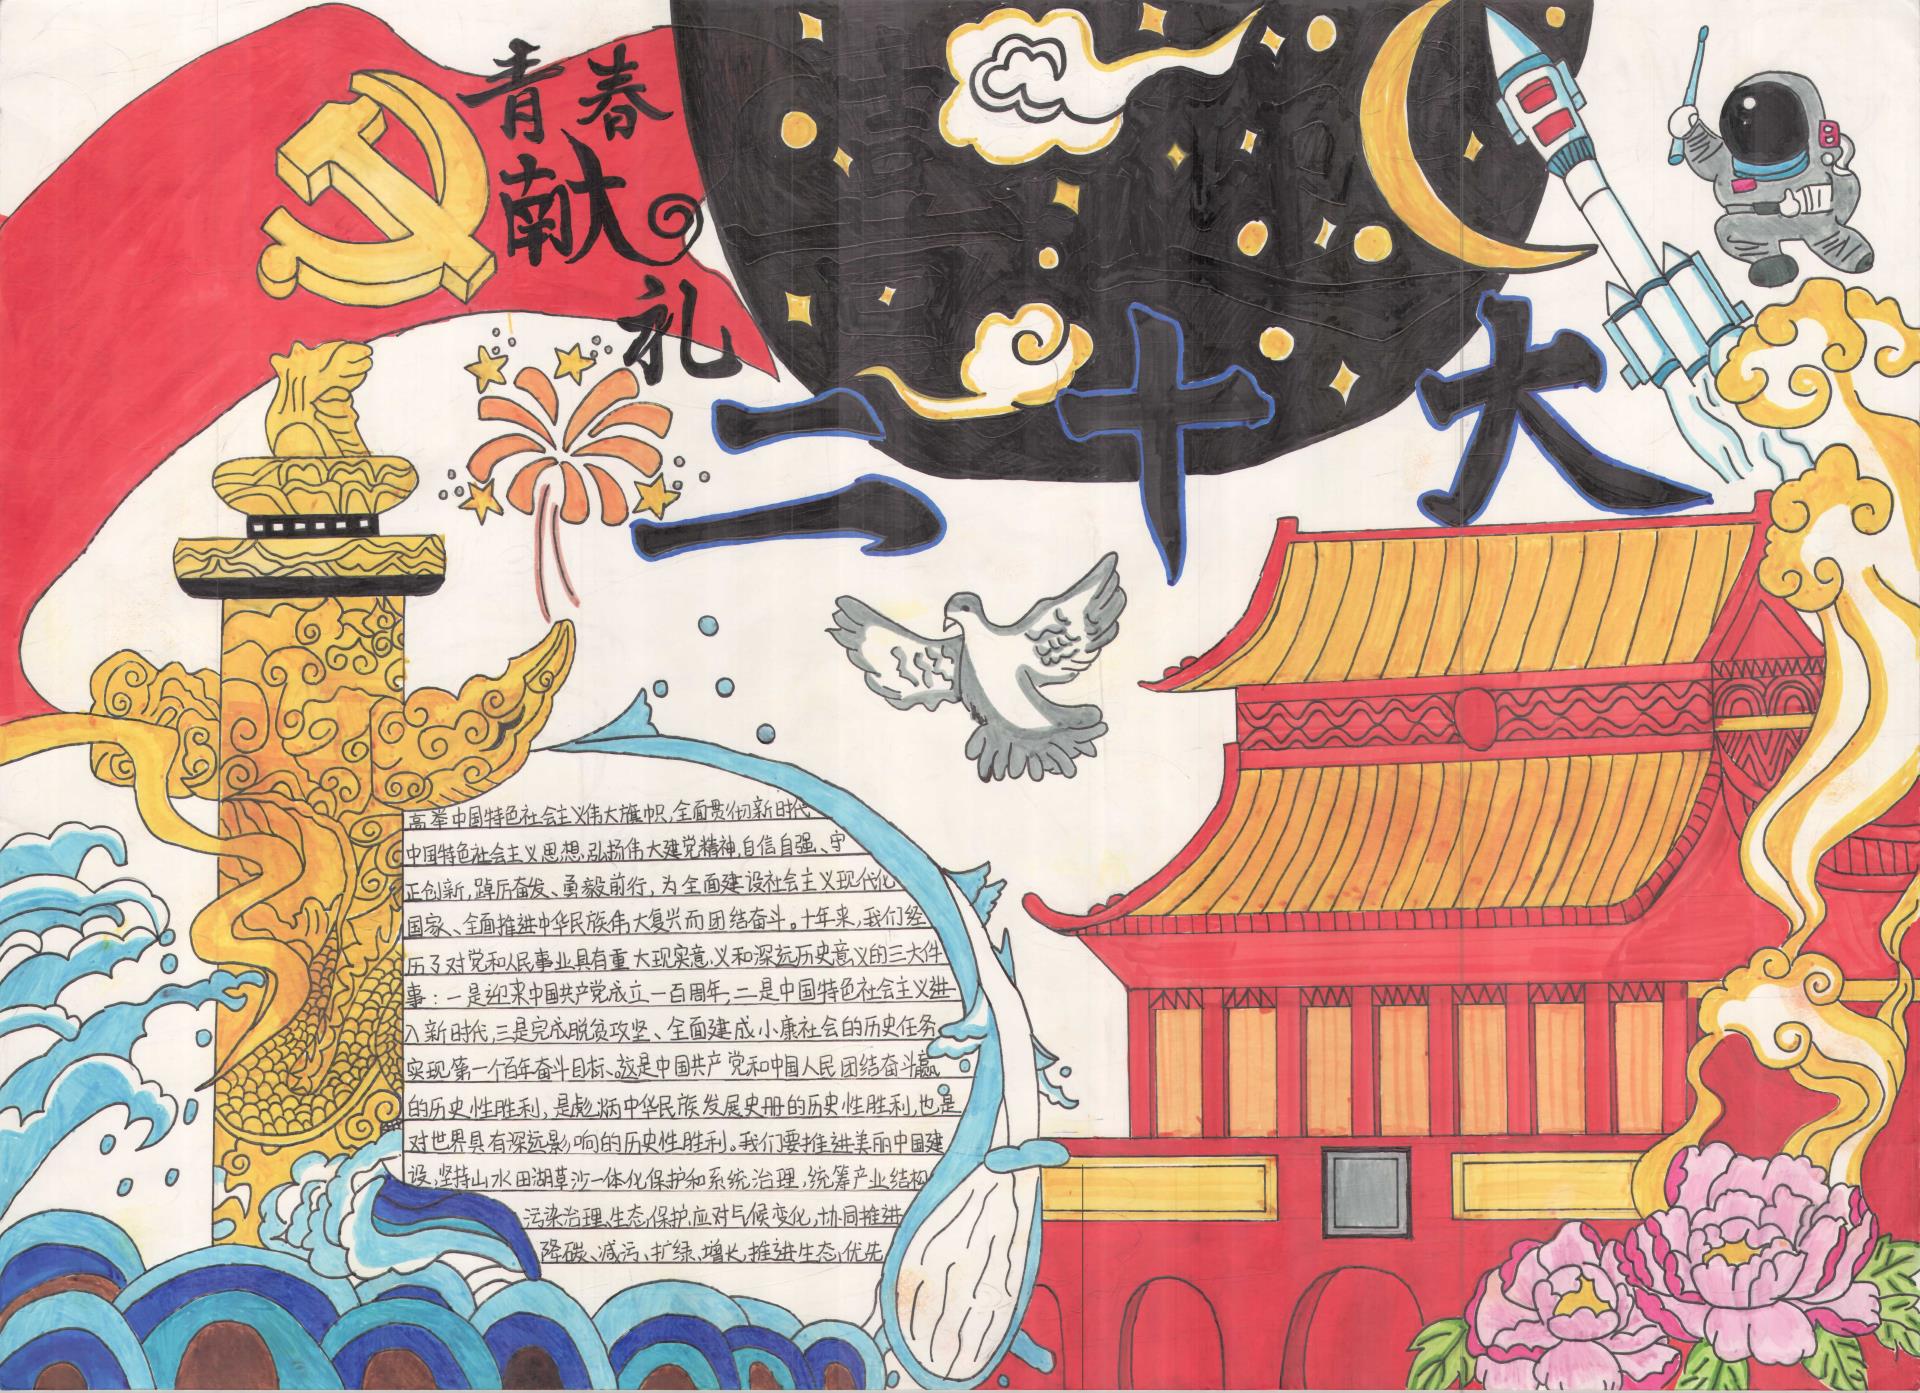 青春
献
礼
二十大
高举中国特色社会主义伟大旗帜,全面贯彻新时代
中国特色社会主义思想,弘扬伟大建党精神,自信自强、守
正创新,踔厉奋发、勇毅前行,为全面建设社会主义现代化
国家、全面推进中华民族伟大复兴而团结奋斗。十年来,我们经
历了对党和人民事业具有重大现实意义和深远历史意义的三大件
事:一是迎来中国共产党成立一百周年,二是中国特色社会主义进
入新时代,三是完成脱贫攻坚、全面建成小康社会的历史任务
实现第一个百年奋斗目标。这是中国共产党和中国人民团结奋斗赢
的历史性胜利,是彪炳中华民族发展史册的历史性胜利,也是
对世界具有深远影响的历史性胜利。我们要推进美丽中国建
设,坚持山水田湖草沙一体化保护和系统治理,统筹产业结构
污染治理、生态保护,应对气候变化,协同推进
降碳、减污、扩绿、增长,推进生态优先